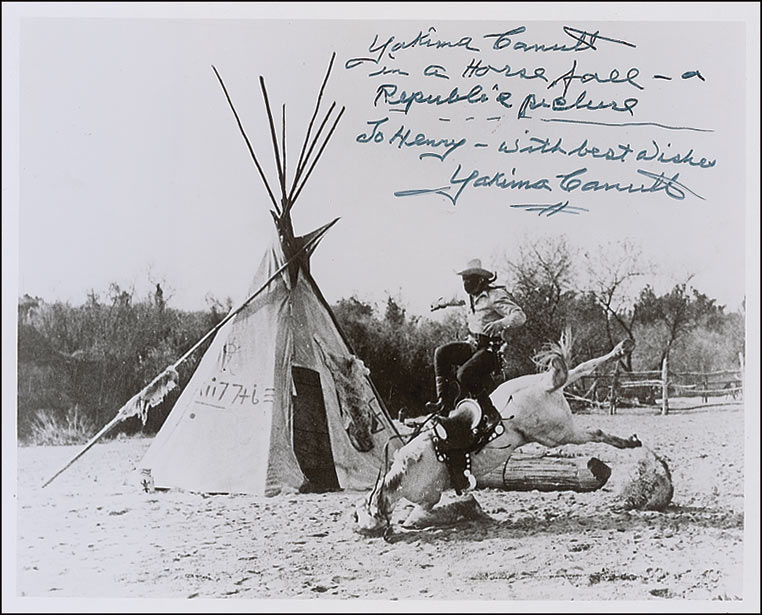 Yakima Canutt
in a Horse fall - a
Republic picture
To Henry - with best wishes
Yakima Canutt